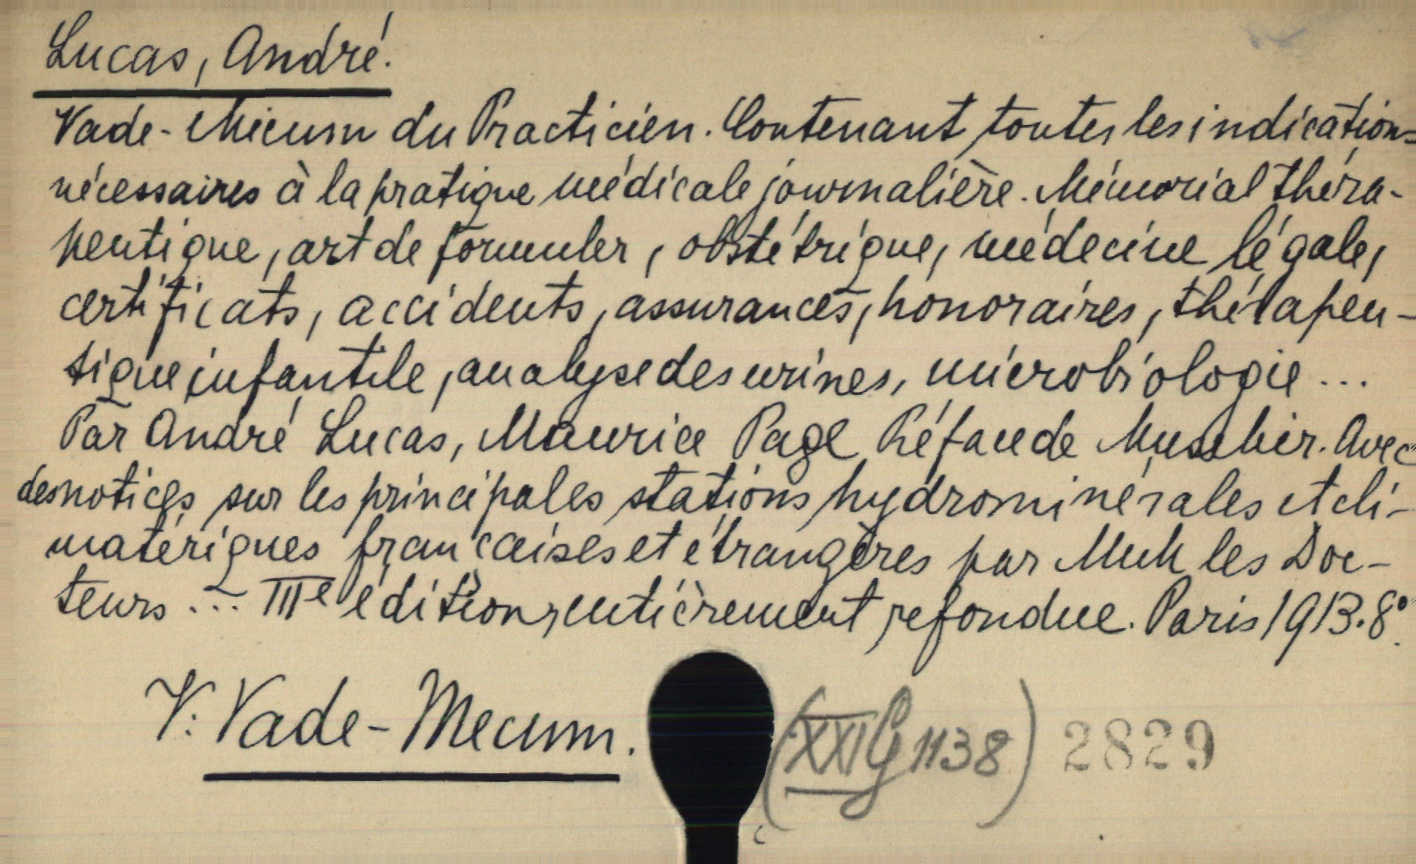 Lucas, André.
Vade-Mecum du Practicien. Contenant toutes les indications
nécessaires à la pratique médicale journalière. Mémorial théra-
peutique, art de formuler, obstétrique, médecine légale,
certificats, accidents, assurances, honoraires, thérapeu-
tique infantile, analyse des urines, microbiologie ...
Par André Lucas, Maurice Page Préface de Avec
des notices sur les principales stations hydrominérales et cli-
matériques françaises et étrangères par les Doc-
teurs ... IIIe édition, entièrement refondue. Paris 1913. 8°.
V: Vade-Mecum.
(XXI G 1138) 2829